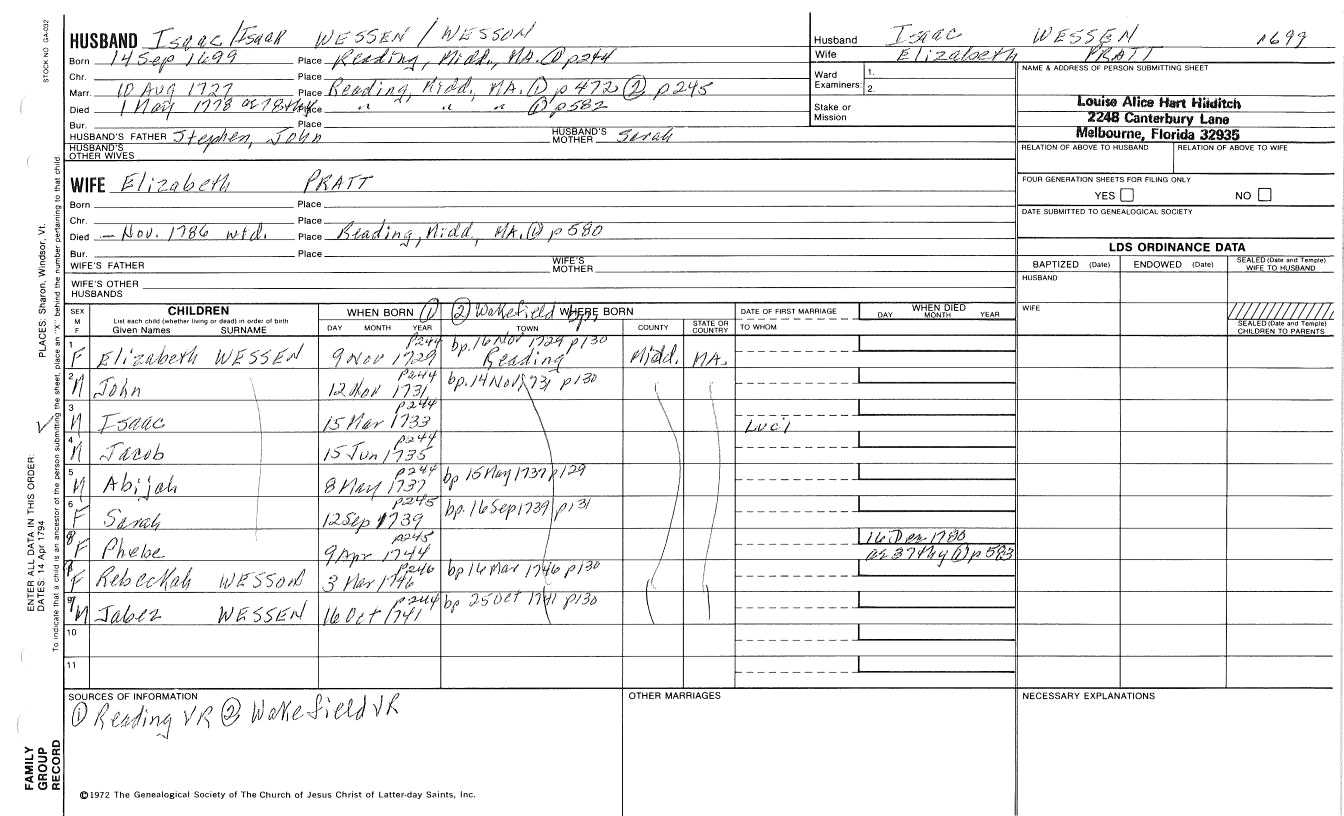 STOCK NO. GA-032
HUSBAND Isaac/Isaak WESSEN / WESSON
Born 14 Sep 1699 Place Reading, Midd., MA. ① p 244
Chr. Place
Marr. 10 Aug 1727 Place Reading, Midd, MA. ① p 472 ② p 245
Died 1 May 1778 ae 78 Place " " " ① p 582
Bur. Place
HUSBAND'S FATHER Stephen, John HUSBAND'S MOTHER Sarah
HUSBAND'S OTHER WIVES
WIFE Elizabeth PRATT
Born Place
Chr. Place
Died — Nov. 1786 wid. Place Reading, Midd, MA. ① p 580
Bur. Place
WIFE'S FATHER WIFE'S MOTHER
WIFE'S OTHER HUSBANDS
Husband Isaac WESSEN 1699
Wife Elizabeth PRATT
Ward Examiners: 1. 2.
Stake or Mission
NAME & ADDRESS OF PERSON SUBMITTING SHEET
Louise Alice Hart Hilditch
2248 Canterbury Lane
Melbourne, Florida 32935
RELATION OF ABOVE TO HUSBAND RELATION OF ABOVE TO WIFE
FOUR GENERATION SHEETS FOR FILING ONLY
YES NO
DATE SUBMITTED TO GENEALOGICAL SOCIETY
LDS ORDINANCE DATA
BAPTIZED (Date) ENDOWED (Date) SEALED (Date and Temple) WIFE TO HUSBAND
HUSBAND
WIFE
SEALED (Date and Temple) CHILDREN TO PARENTS
SEX M F CHILDREN WHEN BORN ① ② Wakefield WHERE BORN DATE OF FIRST MARRIAGE WHEN DIED
List each child (whether living or dead) in order of birth
Given Names SURNAME DAY MONTH YEAR TOWN COUNTY STATE OR COUNTRY TO WHOM DAY MONTH YEAR
1 F Elizabeth WESSEN 9 Nov 1729 p244 bp. 16 Nov 1729 p130 Reading Midd. MA.
2 M John 12 Nov 1731 p244 bp. 14 Nov 1731 p130
3 M Isaac 15 Mar 1733 p244 Luci
4 M Jacob 15 Jun 1735 p244
5 M Abijah 8 May 1737 p244 bp 15 May 1737 p129
6 F Sarah 12 Sep 1739 p245 bp. 16 Sep 1739 p131
8 F Phebe 9 Apr 1744 p245 16 Dec 1780 ae 37th y ① p 583
F Rebeckah WESSON 3 Mar 1746 p246 bp 16 Mar 1746 p130
9 M Jabez WESSEN 16 Oct 1741 p244 bp 25 Oct 1741 p130
10
11
SOURCES OF INFORMATION OTHER MARRIAGES NECESSARY EXPLANATIONS
① Reading VR ② Wakefield VR
©1972 The Genealogical Society of The Church of Jesus Christ of Latter-day Saints, Inc.
FAMILY GROUP RECORD
ENTER ALL DATA IN THIS ORDER:
DATES: 14 Apr 1794 PLACES: Sharon, Windsor, Vt.
To indicate that a child is an ancestor of the person submitting the sheet, place an "X" behind the number pertaining to that child